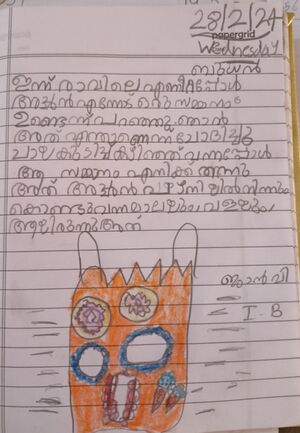 28/2/24
papergrid
Wednesday
ബുധൻ
ഇന്ന് രാവിലെ എണീറ്റപ്പോൾ
അമ്മൻ എന്നോട് ഒരു സമ്മാനം
ഉണ്ടെന്ന് പറഞ്ഞു. ഞാൻ
അത് എന്താണെന്ന് ചോദിച്ചു
പാല് കുടിച്ച് കഴിഞ്ഞ് വന്നപ്പോൾ
ആ സമ്മാനം എനിക്ക് തന്നു
അത് അമ്മൻ പഴനിയിൽ നിന്നും
കൊണ്ടുവന്ന മാലയും വളയും
ആയിരുന്നു അത്
ജാൻവി
I. B